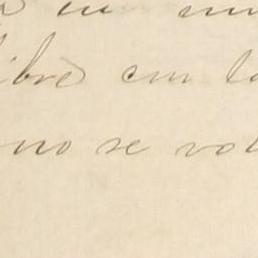 en un
libre con la
no se vol